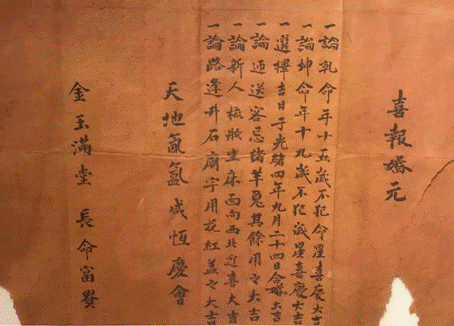 喜報婚元
一論乾命年十五歲不犯命星喜慶大吉
一論坤命年十九歲不犯歲星喜慶大吉
一選擇吉日于光緒四年九月二十四日合婚大吉
一論迎送客忌猪羊兔其餘用之大吉
一論新人梳妝坐床面向西北迎喜大吉
一論路逢井石廟宇用花紅蓋之大吉
天地氤氳咸恆慶會
金玉滿堂 長命富貴